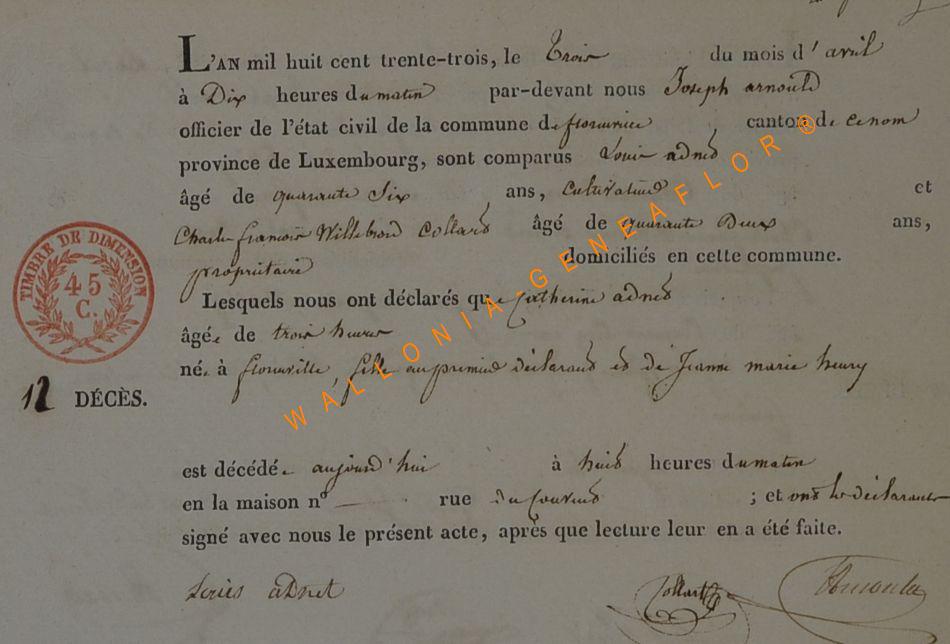 L'AN mil huit cent trente-trois, le Trois du mois d'avril
à Dix heures du matin par-devant nous Joseph arnould
officier de l'état civil de la commune de florenville canton de
province de Luxembourg, sont comparus Louis adnet
âgé de quarante Six ans, cultivateur et
Charle francois Willebrord Collard âgé de quarante Deux ans,
propriétaire domiciliés en cette commune.
Lesquels nous ont déclarés que Catherine adnet
âgée de trois heures
née à florenville, fille au premier déclarant et de Jeanne marie henry
TIMBRE DE DIMENSION
45
C.
12 DÉCÈS.
est décédée aujourd'hui à huit heures du matin
en la maison nº — rue du ; et ont les déclarants
signé avec nous le présent acte, après que lecture leur en a été faite.
Louis adnet Collard Arnould
WALLONIA-GENEAFLOR®